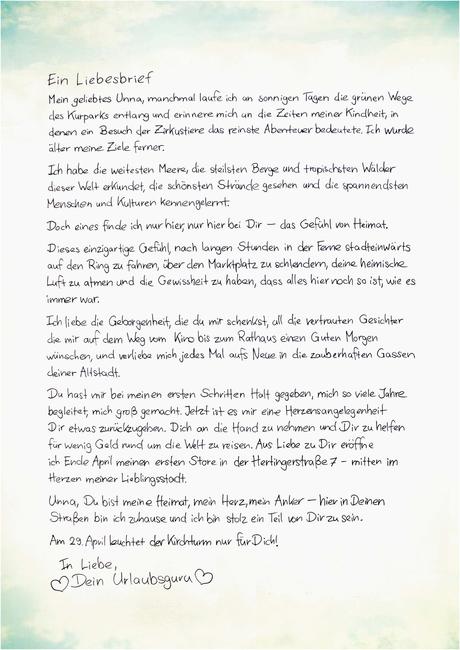 Ein Liebesbrief
Mein geliebtes Unna, manchmal laufe ich an sonnigen Tagen die grünen Wege
des Kurparks entlang und erinnere mich an die Zeiten meiner Kindheit, in
denen ein Besuch der Zirkustiere das reinste Abenteuer bedeutete. Ich wurde
älter meine Ziele ferner.
Ich habe die weitesten Meere, die steilsten Berge und tropischsten Wälder
dieser Welt erkundet, die schönsten Strände gesehen und die spannendsten
Menschen und Kulturen kennengelernt.
Doch eines finde ich nur hier, nur hier bei Dir — das Gefühl von Heimat.
Dieses einzigartige Gefühl, nach langen Stunden in der Ferne stadteinwärts
auf den Ring zu fahren, über den Marktplatz zu schlendern, deine heimische
Luft zu atmen und die Gewissheit zu haben, dass alles hier noch so ist, wie es
immer war.
Ich liebe die Geborgenheit, die du mir schenkst, all die vertrauten Gesichter
die mir auf dem Weg vom Kino bis zum Rathaus einen Guten Morgen
wünschen, und verliebe mich jedes Mal aufs Neue in die zauberhaften Gassen
deiner Altstadt.
Du hast mir bei meinen ersten Schritten Halt gegeben, mich so viele Jahre
begleitet, mich groß gemacht. Jetzt ist es mir eine Herzensangelegenheit
Dir etwas zurückzugeben. Dich an die Hand zu nehmen und Dir zu helfen
für wenig Geld rund um die Welt zu reisen. Aus Liebe zu Dir eröffne
ich Ende April meinen ersten Store in der Hertingerstraße 7 – mitten im
Herzen meiner Lieblingsstadt.
Unna, Du bist meine Heimat, mein Herz, mein Anker — hier in Deinen
Straßen bin ich zuhause und ich bin stolz ein Teil von Dir zu sein.
Am 29. April leuchtet der Kirchturm nur für Dich!
In Liebe,
♡ Dein Urlaubsguru ♡